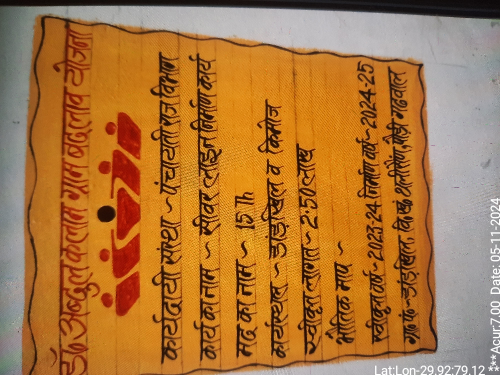 डॉ० अब्दुल कलाम ग्राम बदलाव योजना
कार्यदायी संस्था ~ पंचायती राज विभाग
कार्य का नाम ~ सीवर लाइन निर्माण कार्य
मद का नाम ~ 15 Th
कार्यस्थल ~ डांडखिल व किमोज
स्वीकृत लागत ~ 2:50 लाख
भौतिक माप ~
स्वीकृत वर्ष ~ 2023-24 निर्माण वर्ष ~ 2024-25
डांडखिल, थलीसैंण, पौड़ी गढ़वाल
Lat:Lon-29.92:79.12
***Acur7.00 Date: 05-11-2024